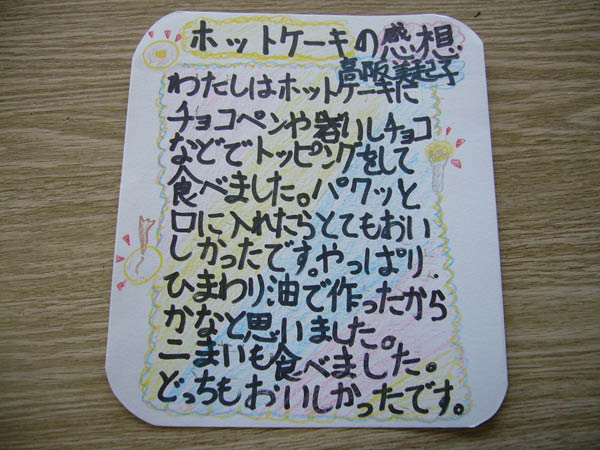 ホットケーキの感想
高阪美起子
わたしはホットケーキに
チョコペンや岩いしチョコ
などでトッピングをして
食べました。パクッと
口に入れたらとてもおい
しかったです。やっぱり
ひまわり油で作ったから
かなと思いました。
二まいも食べました。
どっちもおいしかったです。